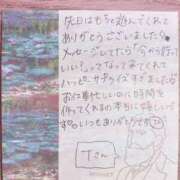 先日はもちろん遊んでくれて
ありがとうございました
メッセージしてたら「今から行って
いい?」ってなって来てくれて
ハッピーサプライズすぎました
お仕事忙しいのに時間を
作ってくれるの本当に嬉しい
ずっといつもありがとうです
Tさん